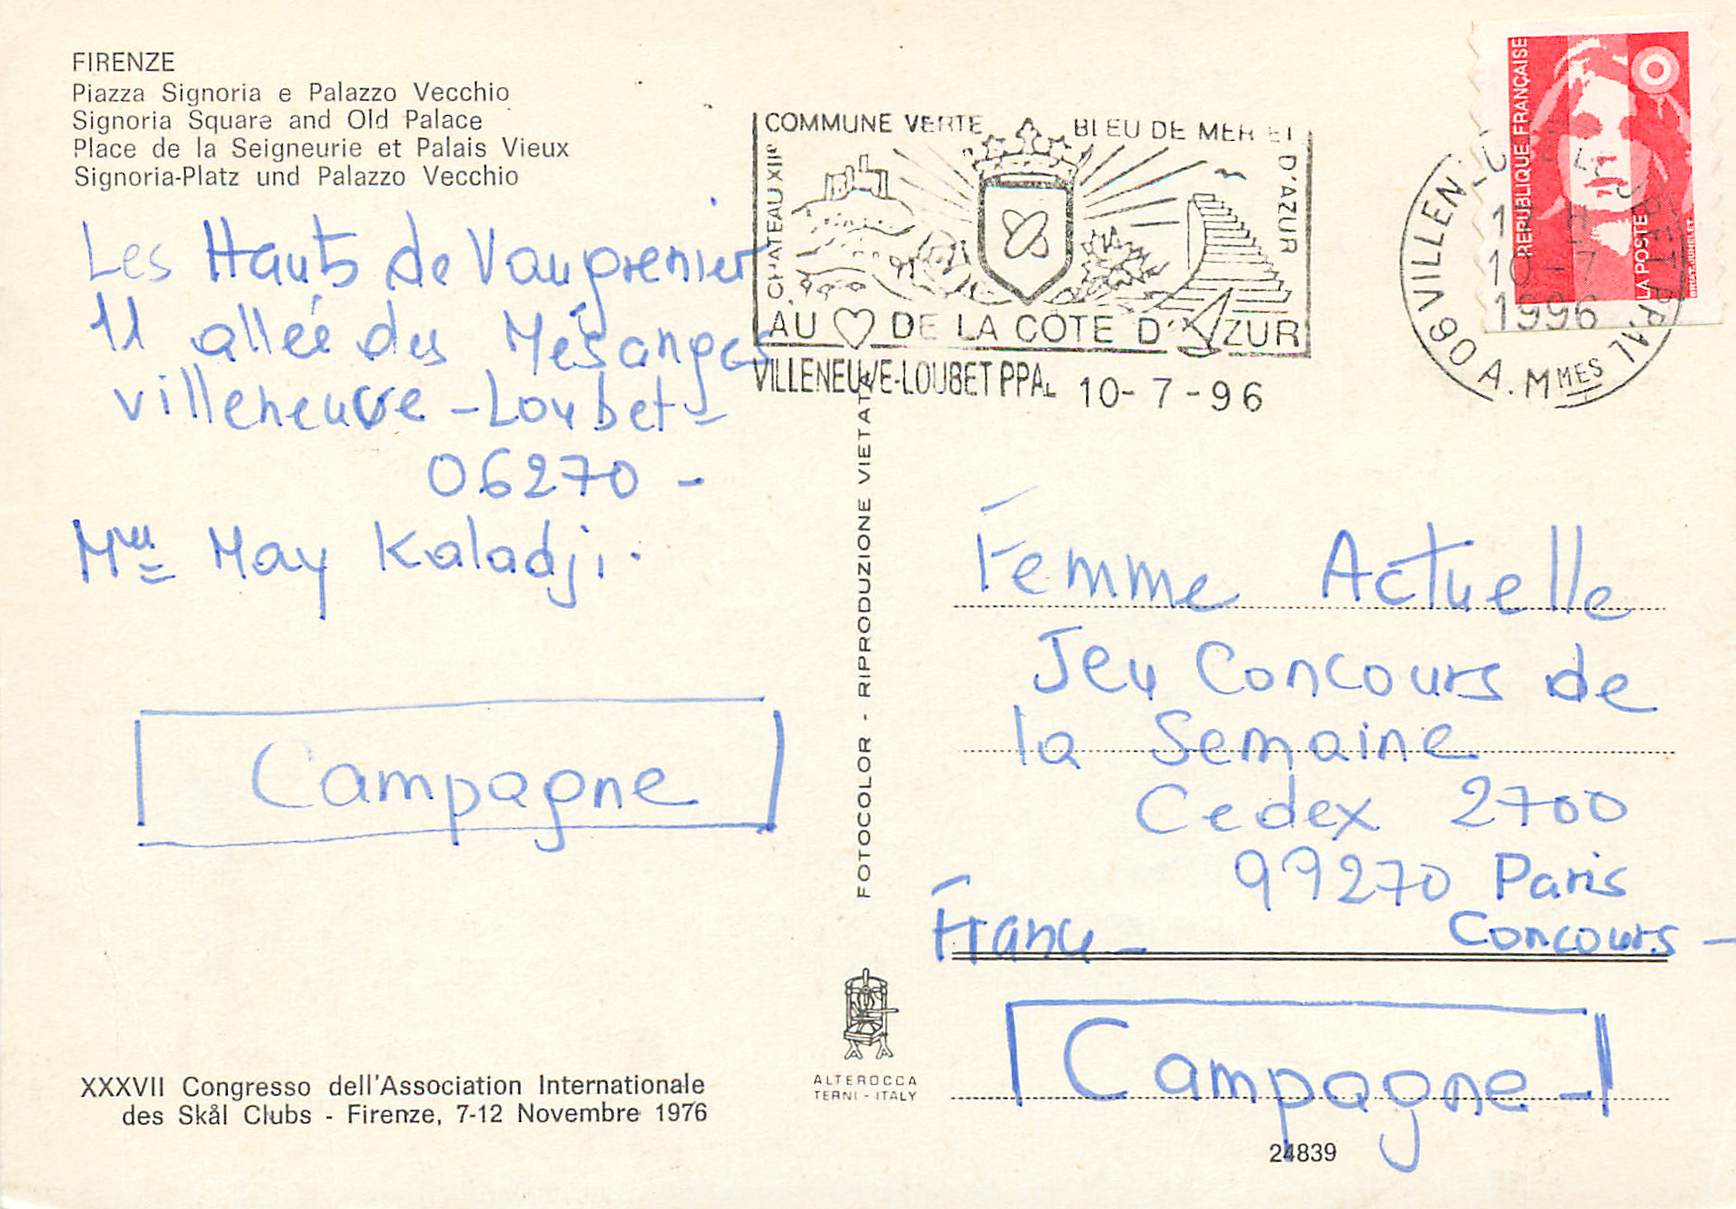 FIRENZE
Piazza Signoria e Palazzo Vecchio
Signoria Square and Old Palace
Place de la Seigneurie et Palais Vieux
Signoria-Platz und Palazzo Vecchio
Les Hauts de Vaugrenier
11 allée des Mésanges
Villeneuve-Loubet-
06270 -
Mme May Kaladji.
Campagne
XXXVII Congresso dell'Association Internationale
des Skål Clubs - Firenze, 7-12 Novembre 1976
COMMUNE VERTE BLEU DE MER ET
D'AZUR
CHATEAU XIIe
AU DE LA COTE D'AZUR
VILLENEUVE-LOUBET PPAL 10-7-96
REPUBLIQUE FRANÇAISE
LA POSTE
10-7
1996
06 A. MMES
FOTOCOLOR - RIPRODUZIONE VIETATA
ALTEROCCA
TERNI - ITALY
Femme Actuelle
Jeu Concours de
la Semaine
Cedex 2700
99270 Paris
France - Concours -
Campagne -
24839